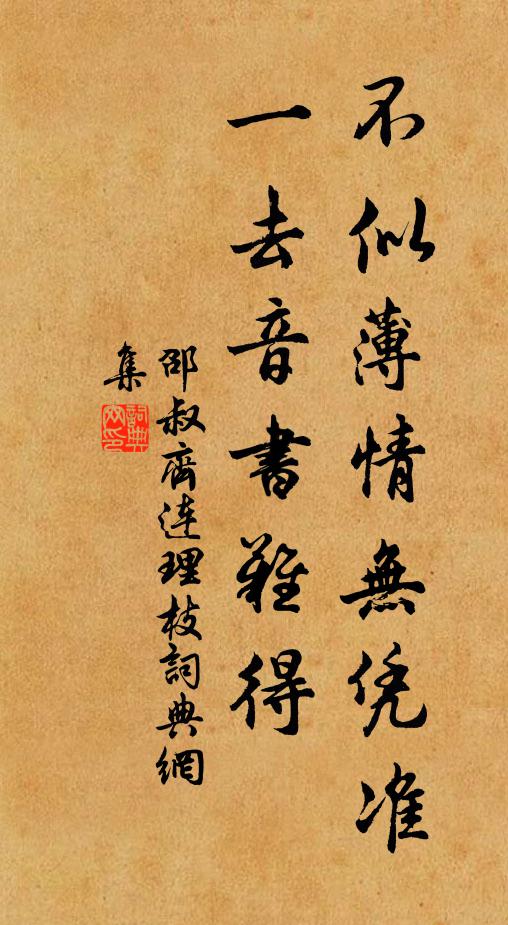 不似薄情無凭准
一去音書難得
邵叔齊連理枝詞典網
集
詞典網印